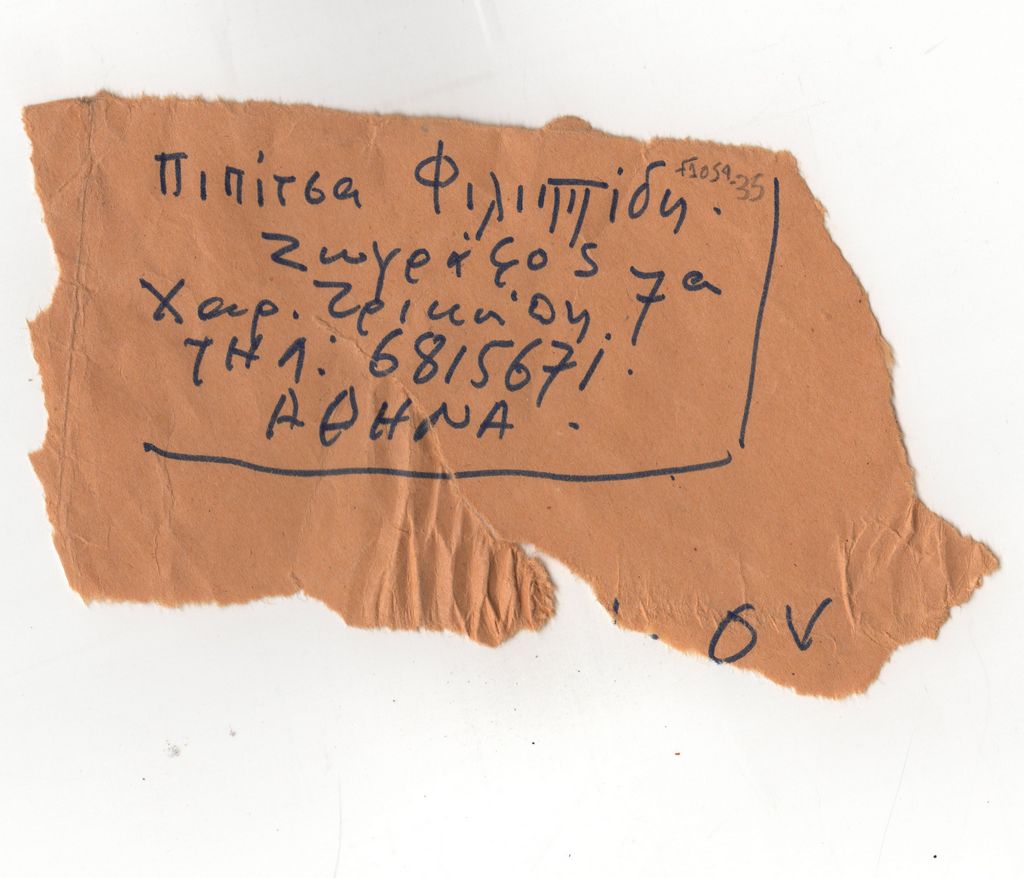 Πιπίτσα Φιλιππίδη.
f1059-35
Ζωγράφος
Χαρ. Τρικούπη 7α
ΤΗΛ: 6815671.
ΑΘΗΝΑ.
ον